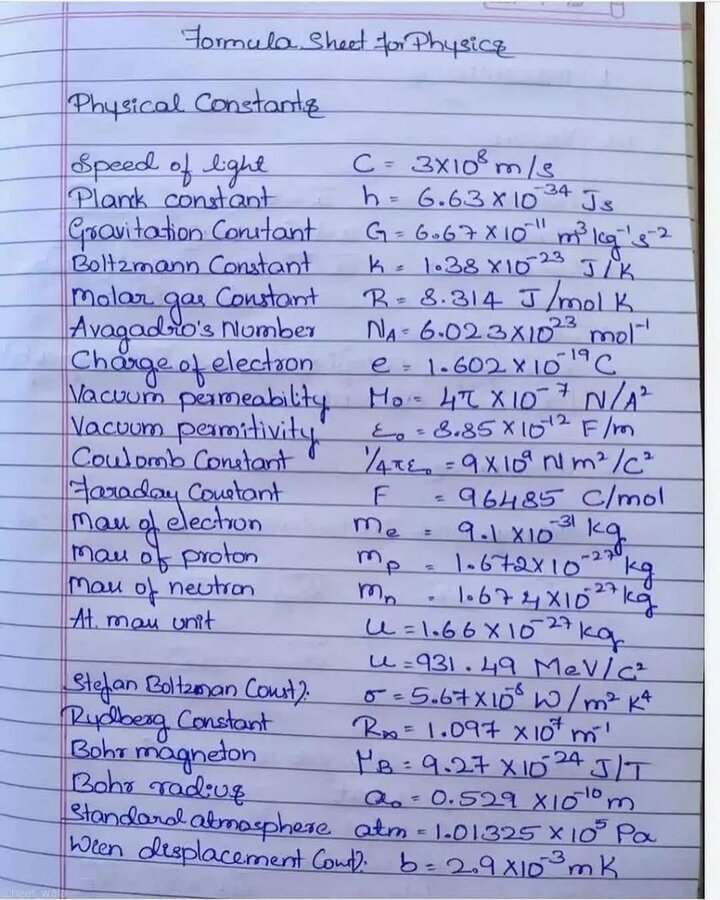 Formula Sheet for Physics
Physical Constants
Speed of light C = 3×10⁸ m/s
Plank constant h = 6.63 × 10⁻³⁴ Js
Gravitation Constant G = 6.67 × 10⁻¹¹ m³ kg⁻¹ s⁻²
Boltzmann Constant K = 1.38 × 10⁻²³ J/K
Molar gas Constant R = 8.314 J/mol K
Avagadro's Number N_A = 6.023×10²³ mol⁻¹
Charge of electron e = 1.602 × 10⁻¹⁹ C
Vacuum permeability μ₀ = 4π × 10⁻⁷ N/A²
Vacuum permitivity ε₀ = 8.85 × 10⁻¹² F/m
Coulomb Constant 1/4πε₀ = 9 × 10⁹ Nm²/C²
Faraday Constant F = 96485 C/mol
Mass of electron m_e = 9.1 × 10⁻³¹ kg
Mass of proton m_p = 1.672 × 10⁻²⁷ kg
Mass of neutron m_n = 1.674 × 10⁻²⁷ kg
At. mass unit u = 1.66 × 10⁻²⁷ kg
u = 931.49 MeV/c²
Stefan Boltzman Const). σ = 5.67×10⁻⁸ W/m² K⁴
Rydberg Constant R∞ = 1.097 × 10⁷ m⁻¹
Bohr magneton μ_B = 9.27 × 10⁻²⁴ J/T
Bohr radius a₀ = 0.529 × 10⁻¹⁰ m
Standard atmosphere atm = 1.01325 × 10⁵ Pa
Ween displacement Const). b = 2.9 × 10⁻³ mK